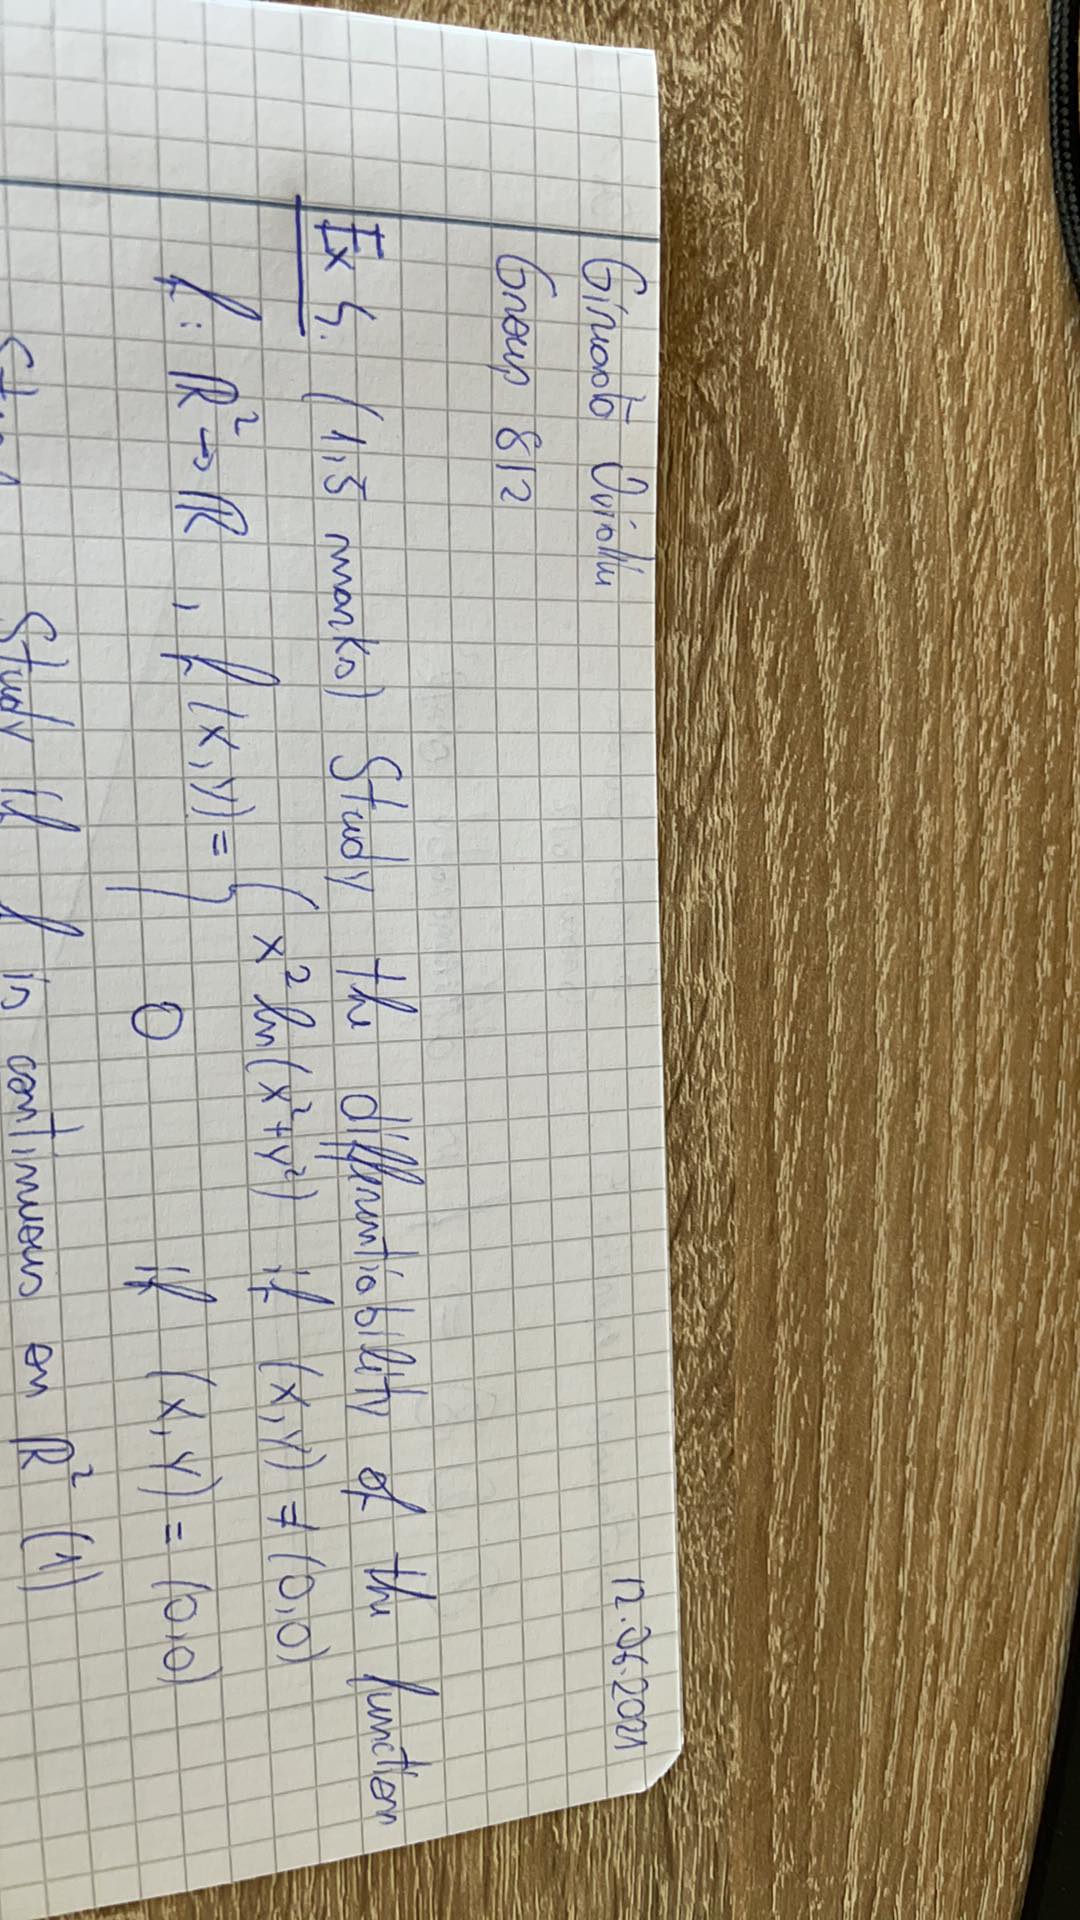 12.06.2021
Group 812
Ex 5. (1,5 marks) Study the differentiability of the function
f: ℝ² → ℝ, f(x,y) = { x² ln(x²+y²) if (x,y) ≠ (0,0)
0 if (x,y) = (0,0)
Study if f is continuous on ℝ² (1)